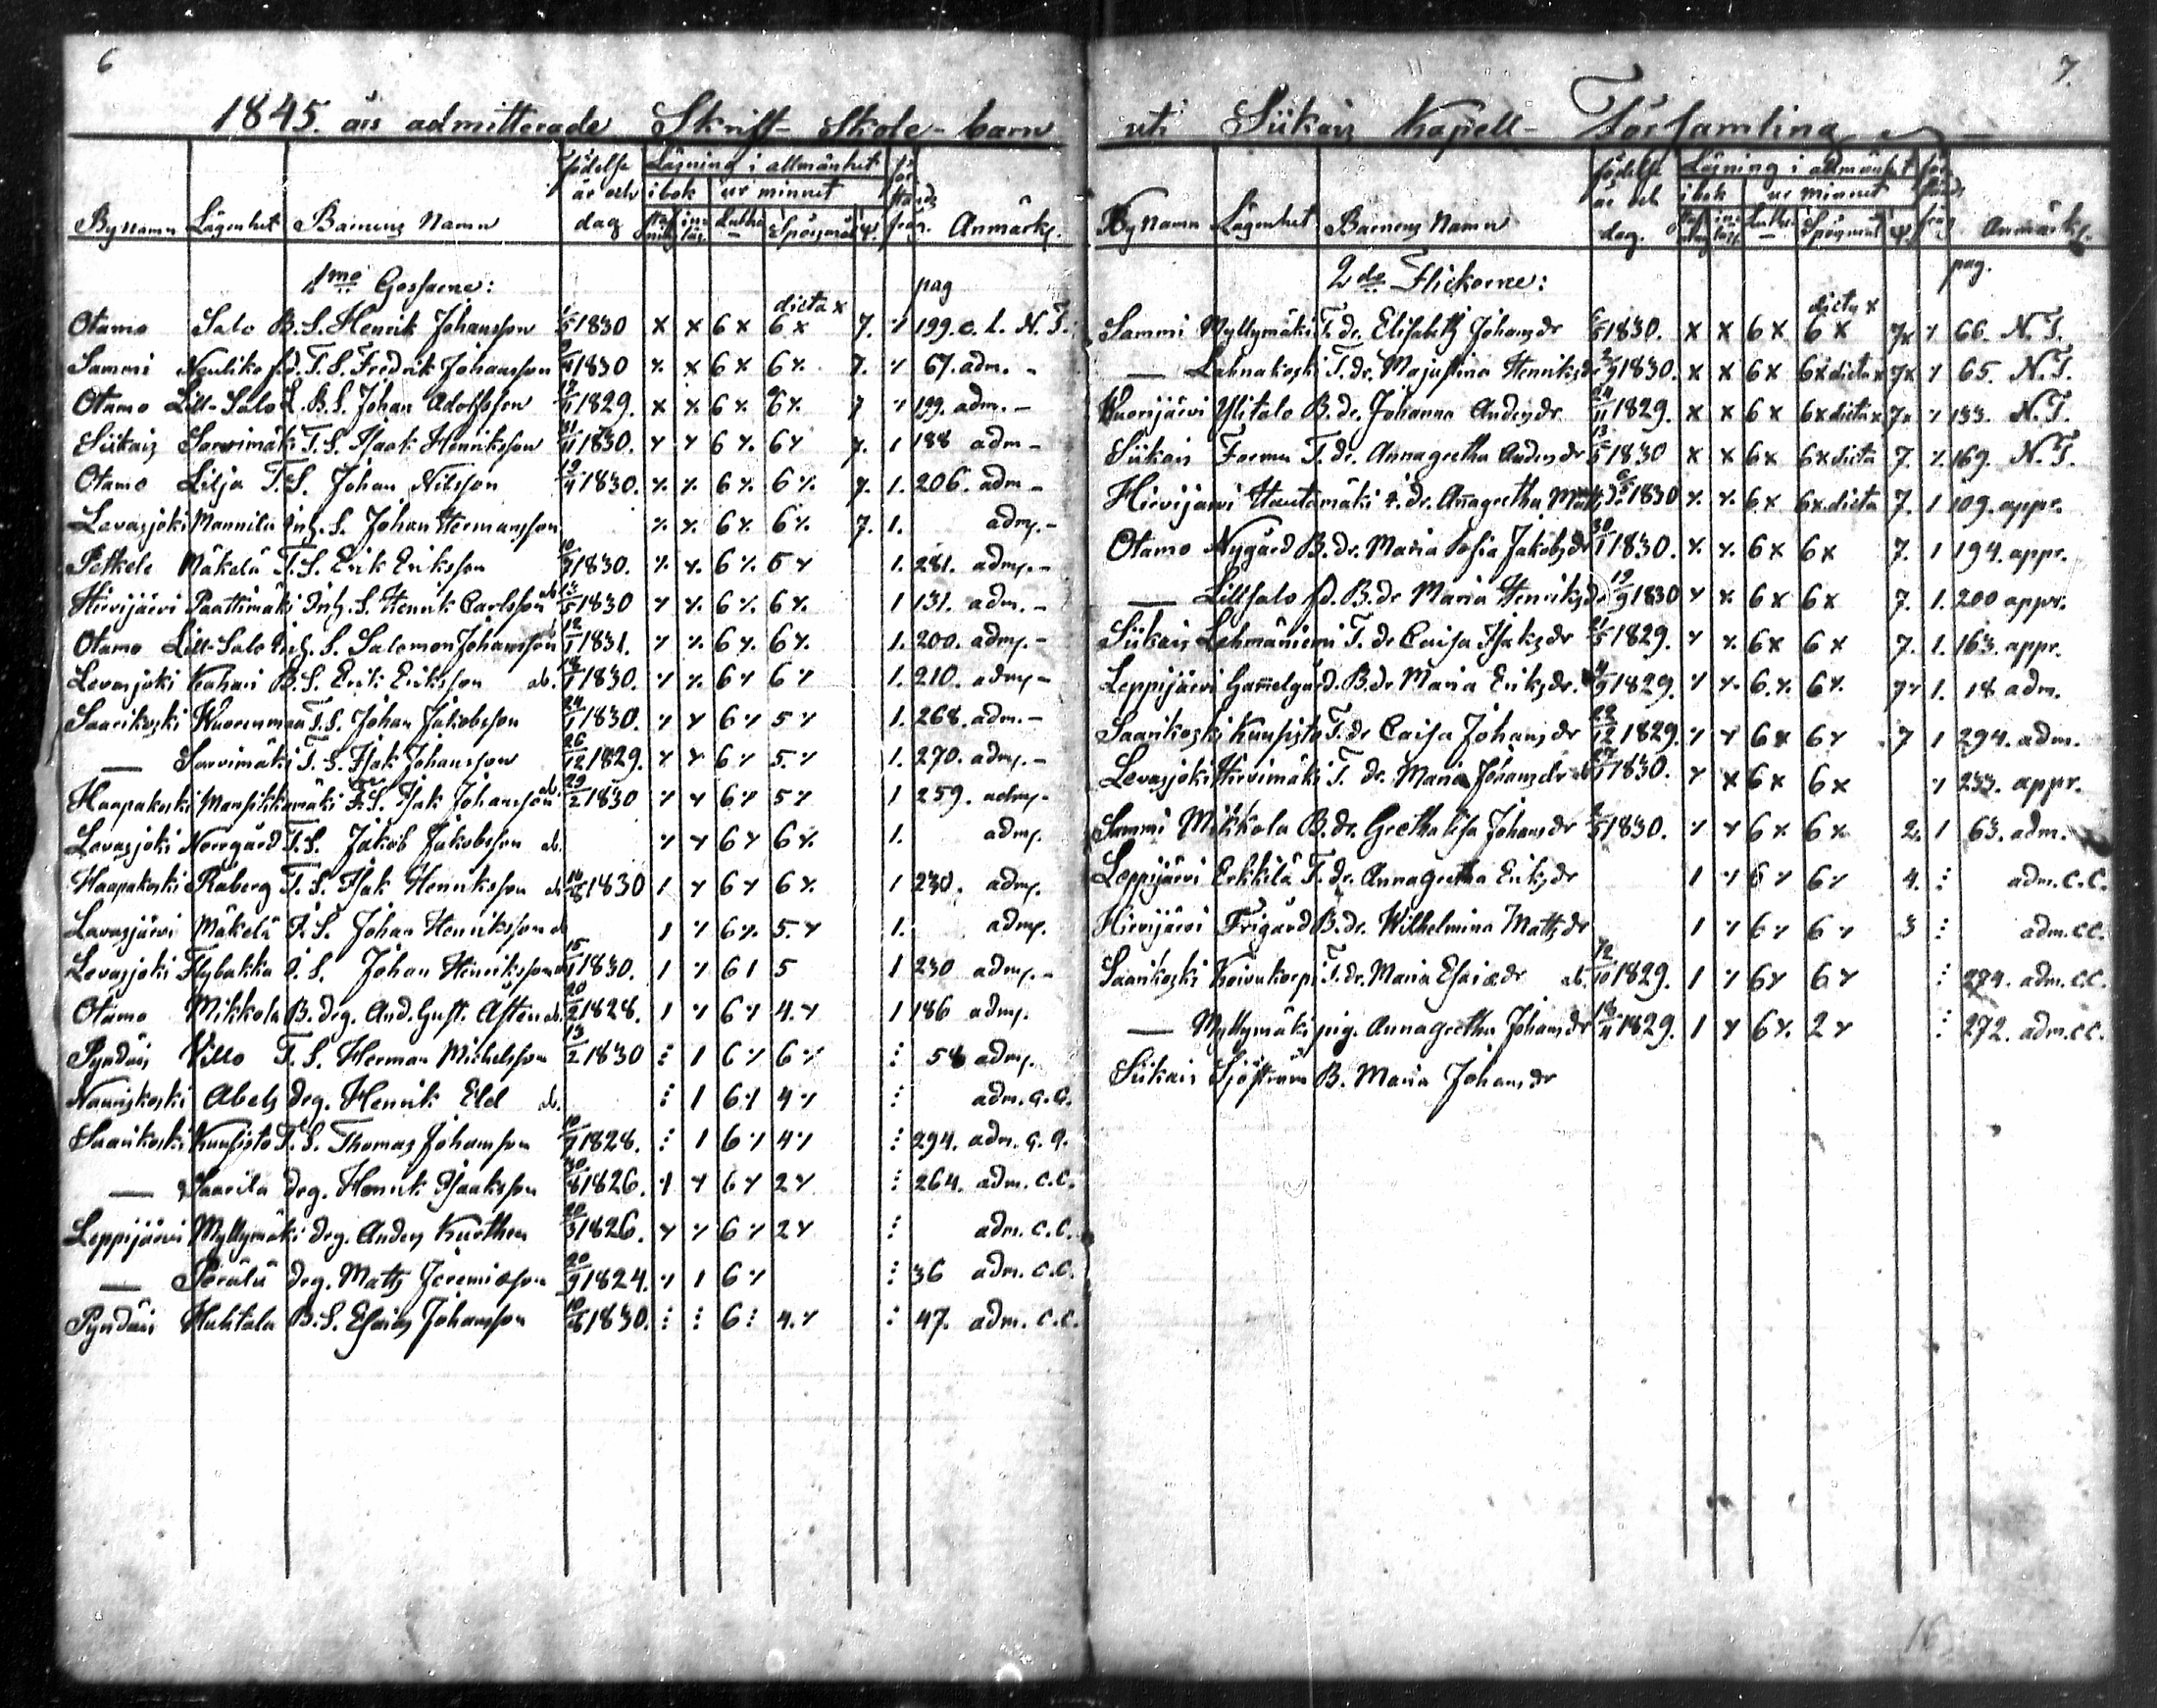 6
1845. års admitterade Skrift- Skole- barn
By namn Lägenhet Barnens Namn födelse år och dag Läsning i allmänhet i bok ur minnet Luthe Spörsmål ψ. Anmärk.
1mo Gossarne: pag
dicta x
Otamo Salo B. S. Henrik Johansson 1830 x x 6 x 6 x 7. 199. c. l. N. T.
Sammi T. S. Fredrik Johansson 1830 6 x 6 7. 67. adm. -
Otamo Lill-Salo B. S. Johan Adolfsson 1829. x x 6 6 7 199. adm. -
Siikais Sorvimäki T. S. Isaak Henriksson 1830. 6 6 7. 1 188 adm -
Otamo Lilja T. S. Johan Nilsson 1830. 6 6 7. 1. 206. adm -
Levasjoki Mannila Inh. S. Johan Hermansson 6 6 7. 1. adm. -
Petkele Mäkelä T. S. Erik Eriksson 1830. 6 6 1. 281. adm. -
Hirvijärvi Paattimäki Inh. S. Henrik Carlsson 1830 6 6 1 131. adm. -
Otamo Lill-Salo Inh. S. Salomon Johansson 1831. 6 6 1. 200. adm. -
Levasjoki Kahari B. S. Erik Eriksson ab. 1830. 6 6 1. 210. adm -
Saarikoski Wuorenmaa T. S. Johan Jakobsson 24/1 1830. 6 5 1. 268. adm. -
— Sorvimäki T. S. Isak Johansson 26/12 1829. 6 5. 1. 270. adm. -
Haapakoski Mansikkamäki T. S. Isak Johansson ab. 29/2 1830 6 5 1 259. adm.
Levasjoki Norrgård T. S. Jakob Jakobsson ab. 6 6 1. adm.
Haapakoski Råberg T. S. Isak Henriksson 1830 1 6 6 1 230. adm.
Lavasjärvi Mäkelä T. S. Johan Henriksson 1 6 5. 1. adm.
Levasjoki Flybakka S. Johan Henriksson 1830. 1 6 1 5 1 230 adm. -
Otamo Mikkola B. drg. And. Gust. Asten ab. 20/2 1828. 1 6 4. 1 186 adm.
Pyndäis Villo T. S. Herman Michelsson 13/2 1830 ⁝ 1 6 6 ⁝ 58 adm.
Abels drg. Henrik Eld ab. ⁝ 1 6 4 ⁝ adm.
Saarikoski Kuusisto T. S. Thomas Johansson 1828. ⁝ 1 6 4 ⁝ 294. adm.
— Saarila drg. Henrik Isaaksson 30/8 1826. 6 2 ⁝ 264. adm. c.c.
Leppijärvi Myllymäki drg. Anders Kurthen 1826. 6 2 ⁝ adm. c.c.
— Perälä drg. Matts Jeremiæson 20/9 1824. 1 6 ⁝ 36 adm. c.c.
Pyndäis Huhtala B. S. Esaias Johansson 1830. ⁝ ⁝ 6 ⁝ 4. ⁝ 47. adm. c.c.
7.
uti Siikais Kapell- Församling
By Namn Lägenhet Barnens Namn födelse år och dag. Läsning i allmänhet i bok ur minnet Luther Spörsmål ψ. Anmärk.
2do Flickorne: pag.
dicta x
Sammi Myllymäki T. dr. Elisabeth Johansdr 1830. x x 6 x 6 x 7x 66. N. T.
— Lahnakoski T. dr. Majastina Henriksdr 1830. x x 6 x 6x dicta x 7x 65. N. T.
Vuorijärvi Ylitalo B. dr. Johanna Andersdr. 24/11 1829. x x 6 x 6x dicta x 7x 133. N. T.
Siikais Forma T. dr. Annagretha Andersdr 13/5 1830 x x 6x 6x dicta 7. 169. N. T.
Hirvijärvi Hautamäki dr. Annagretha 1830 6 x 6x dicta 7. 1 109. appr.
Otamo Nygård B. dr. Maria Sofia Jakobsdr 30/1 1830. 6 x 6 x 7. 1 194. appr.
— Lillsalo B. dr Maria Henriksdr 19/9 1830 6 x 6 x 7. 1. 200 appr.
Siikais Lehmäniemi T. dr Caisa Isaksdr 21/5 1829. 6 x 6 x 7. 1. 163. appr.
Leppijärvi Gammelgård. B. dr Maria Eriksdr. 1829. 6. 6 7 1. 18 adm.
Saarikoski Kuusisto T. dr Caisa Johansdr 22/12 1829. 6 x 6 7 1 294. adm.
Levasjoki Hirvimäki T. dr. Maria Johansdr ab 27/1 1830. x 6 x 6 x 233. appr.
Sammi Mikkola B. dr. Gretha Lisa Johansdr 1830. 6 6 2. 1 63. adm.
Leppijärvi Erkkilä T. dr. Annagretha Eriksdr 1 6 6 4. ⁝ adm. c.c.
Hirvijärvi Frigård B. dr. Wilhelmina Mattsdr 1 6 6 3 ⁝ adm. c.c.
Saarikoski Koivukorpi T. dr. Maria Esaiædr ab. 12/10 1829. 1 6 6 ⁝ 274. adm. c.c.
— Myllymäki pig. Annagretha Johansdr 1829. 1 6 2 ⁝ 272. adm. c.c.
Siikais Sjöström B. Maria Johansdr